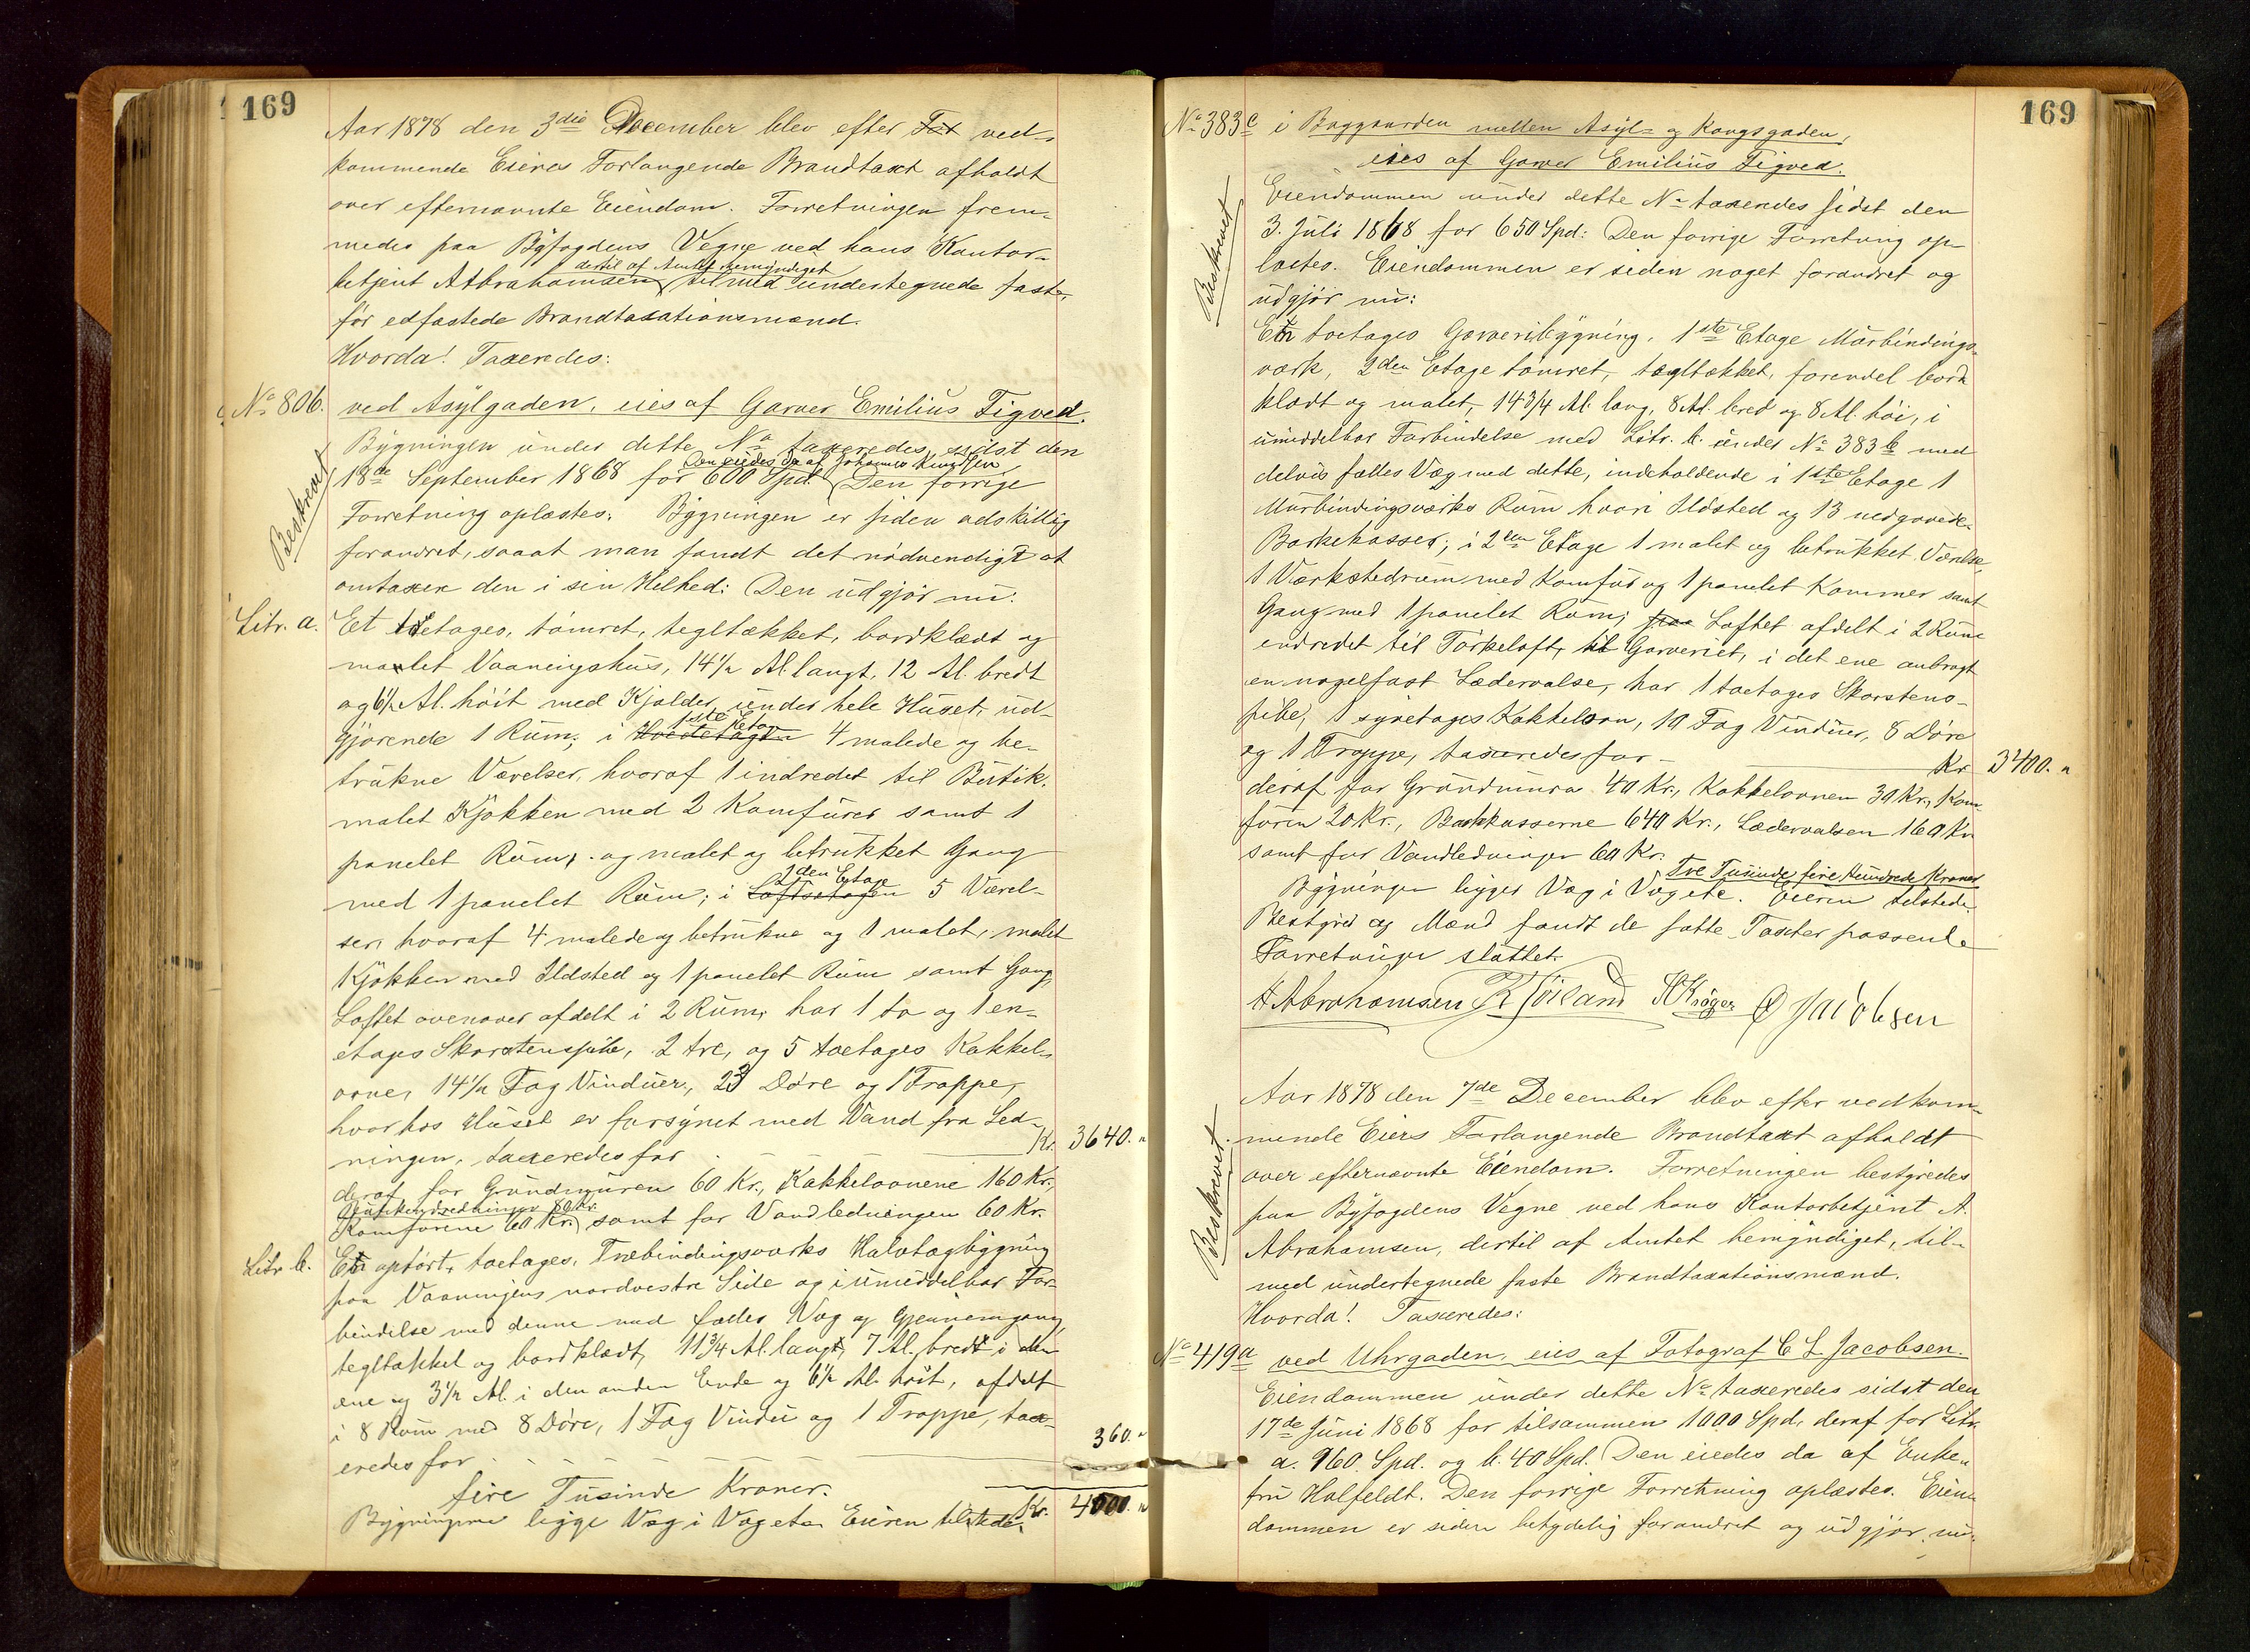 169
Aar 1878 den 3die December blev efter Fat ved-
kommende Eieres Forlangende Brandtaxt afholdt
over efternævnte Eiendom. Forretningen frem-
medes paa Byfogdens Vegne ved hans Kontor-
dertil af Amtet bemyndiget
betjent A Abrahamsen, tilmed undertegnede faste,
før edfæstede Brandtaxationsmænd.
Hvorda! Taxeredes:
No 806. ved Asylgaden, eies af Garver Emilius Tigved.
Beskrevet
Bygningen under dette No taxeredes sidst den
Den eiedes da af Johannes
18de September 1868 for 600 Spd. Den forrige
Forretning oplæstes. Bygningen er siden adskillig
forandret, saaat man fandt det nødvendigt at
omtaxere den i sin Helhed: Den udgjør nu:
Litr. a. Et toetages, tømret, tegltækket, bordklædt og
malet Vaaningshus, 14 1/2 Al. langt, 12 Al. bredt
og 6 1/2 Al. høit med Kjelder under hele Huset, ud-
1ste Etage
gjørende 1 Rum; i Hovedetagen 4 malede og be-
trukne Værelser, hvoraf 1 indredet til Butik,
malet Kjøkken med 2 Komfurer samt 1
panelet Rum, og malet og betrukket Gang
2den Etage
med 1 panelet Rum; i Loftsetagen 5 Værel-
ser, hvoraf 4 malede og betrukne og 1 malet, malet
Kjøkken med Ildsted og 1 panelet Rum samt Gang,
Loftet ovenover afdelt i 2 Rum, har 1 to og 1 en-
etages Skorstenspibe, 2 tre, og 5 toetages Kakkel-
ovne, 14 1/2 Fag Vinduer, 23 Døre og 1 Trappe,
hvorhos Huset er forsynet med Vand fra Led-
ningen, taxeredes for Kr. 3640. "
deraf for Grundmuren 60 Kr., Kakkelovnene 160 Kr.,
Butikindredningen 80 Kr.
Komfurene 60 Kr. samt for Vandledningen 60 Kr.
Litr. b. En opført, toetages, Træbindingsværks Halvtagbygning
paa Vaaningens nordvestre Side og i umiddelbar For
bindelse med denne med fælles Væg og Gjennemgang,
tegltækket og bordklædt, 11 3/4 Al. langt, 7 Al. bredt i den
ene og 3 1/2 Al. i den anden Ende og 6 1/2 Al. høit, afdelt
i 8 Rum med 8 Døre, 1 Fag Vindu og 1 Trappe, tax-
eredes for 360. "
fire Tusinde Kroner. Kr. 4000. "
Bygningerne ligge Væg i Væg etc. Eieren tilstede.
169
No 383c i Baggaarden mellem Asyl- og Kongsgaden,
eies af Garver Emilius Tigved.
Beskrevet
Eiendommen under dette No taxeredes sidst den
3. Juli 1868 for 650 Spd: Den forrige Forretning op-
læstes. Eiendommen er siden noget forandret og
udgjør nu:
En toetages Garveribygning, 1ste Etage Murbindings-
værk, 2den Etage tømret, tegltækket, forendel bord
klædt og malet, 14 3/4 Al. lang, 8 Al. bred og 8 Al. høi, i
umiddelbar Forbindelse med Litr. b. under No 383 b med
delvis fælles Væg med dette, indeholdende i 1ste Etage 1
Murbindingsværks Rum hvori Ildsted og 13 nedgravede
Barkekasser, i 2den Etage 1 malet og betrukket Værelse,
1 Værkstedrum med Komfur og 1 panelet Kammer samt
Gang med 1 panelet Rum; paa Loftet afdelt i 2 Rum
endredet til Tørkeloft, til Garveriet, i det ene anbragt
en nagelfast Lædervalse, har 1 toetages Skorstens-
pibe, 1 syvetages Kakkelovn, 10 Fag Vinduer, 8 Døre
og 1 Trappe, taxeredes for Kr 3400. "
deraf for Grundmuren 40 Kr., Kakkelovnen 30 Kr., Kom
furen 20 Kr., Barkkasserne 640 Kr., Lædervalsen 160 Kr.
samt for Vandledningen 60 Kr.
Tre Tusinde fire Hundrede Kroner
Bygningen ligger Væg i Væg etc. Eieren tilstede.
Bestyrer og Mænd fandt de satte Taxter passende
Forretningen sluttet.
A Abrahamsen R Jösland H Krøger O Jacobsen
Beskrevet
Aar 1878 den 7de December blev efter vedkom-
mende Eiers Forlangende Brandtaxt afholdt
over efternævnte Eiendom. Forretningen bestyredes
paa Byfogdens Vegne ved hans Kontorbetjent A.
Abrahamsen, dertil af Amtet bemyndiget, til-
med undertegnede faste Brandtaxationsmænd.
Hvorda! Taxeredes:
No 419a ved Uhrgaden, eies af Fotograf C L Jacobsen.
Eiendommen under dette No taxeredes sidst den
17de Juni 1868 for tilsammen 1000 Spd, deraf for Litr.
a. 960. Spd. og b. 40 Spd. Den eiedes da af Enke-
fru Halfeldt. Den forrige Forretning oplæstes. Eien-
dommen er siden betydelig forandret og udgjør nu: